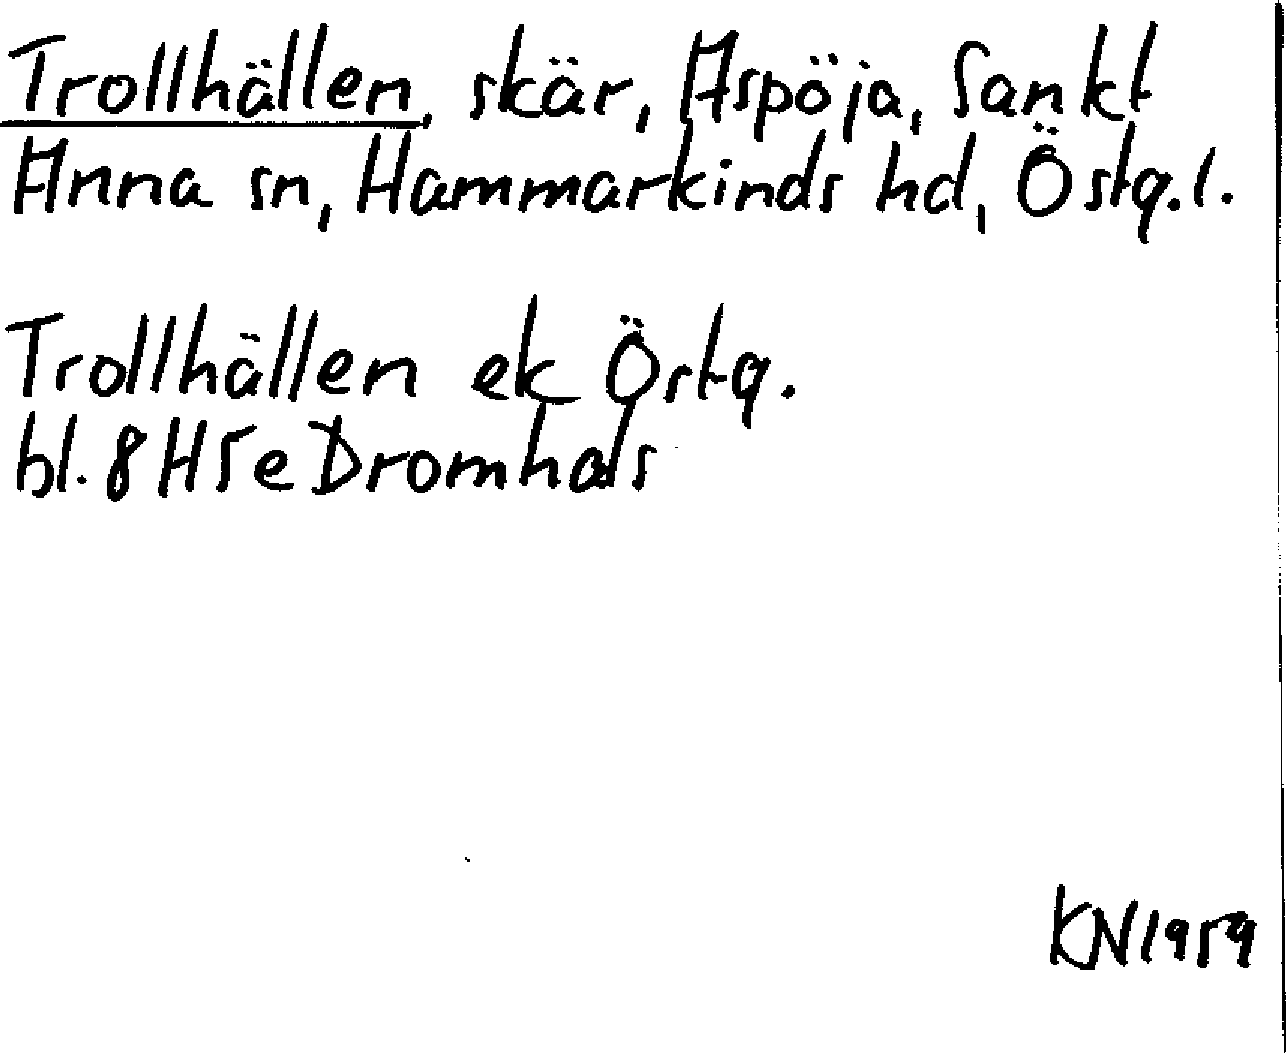 Trollhällen, skär, Aspöja, Sankt
Anna sn, Hammarkinds hd, Östg.l.
Trollhällen ek Östg.
bl. 8H5e Dromhals
KN1959